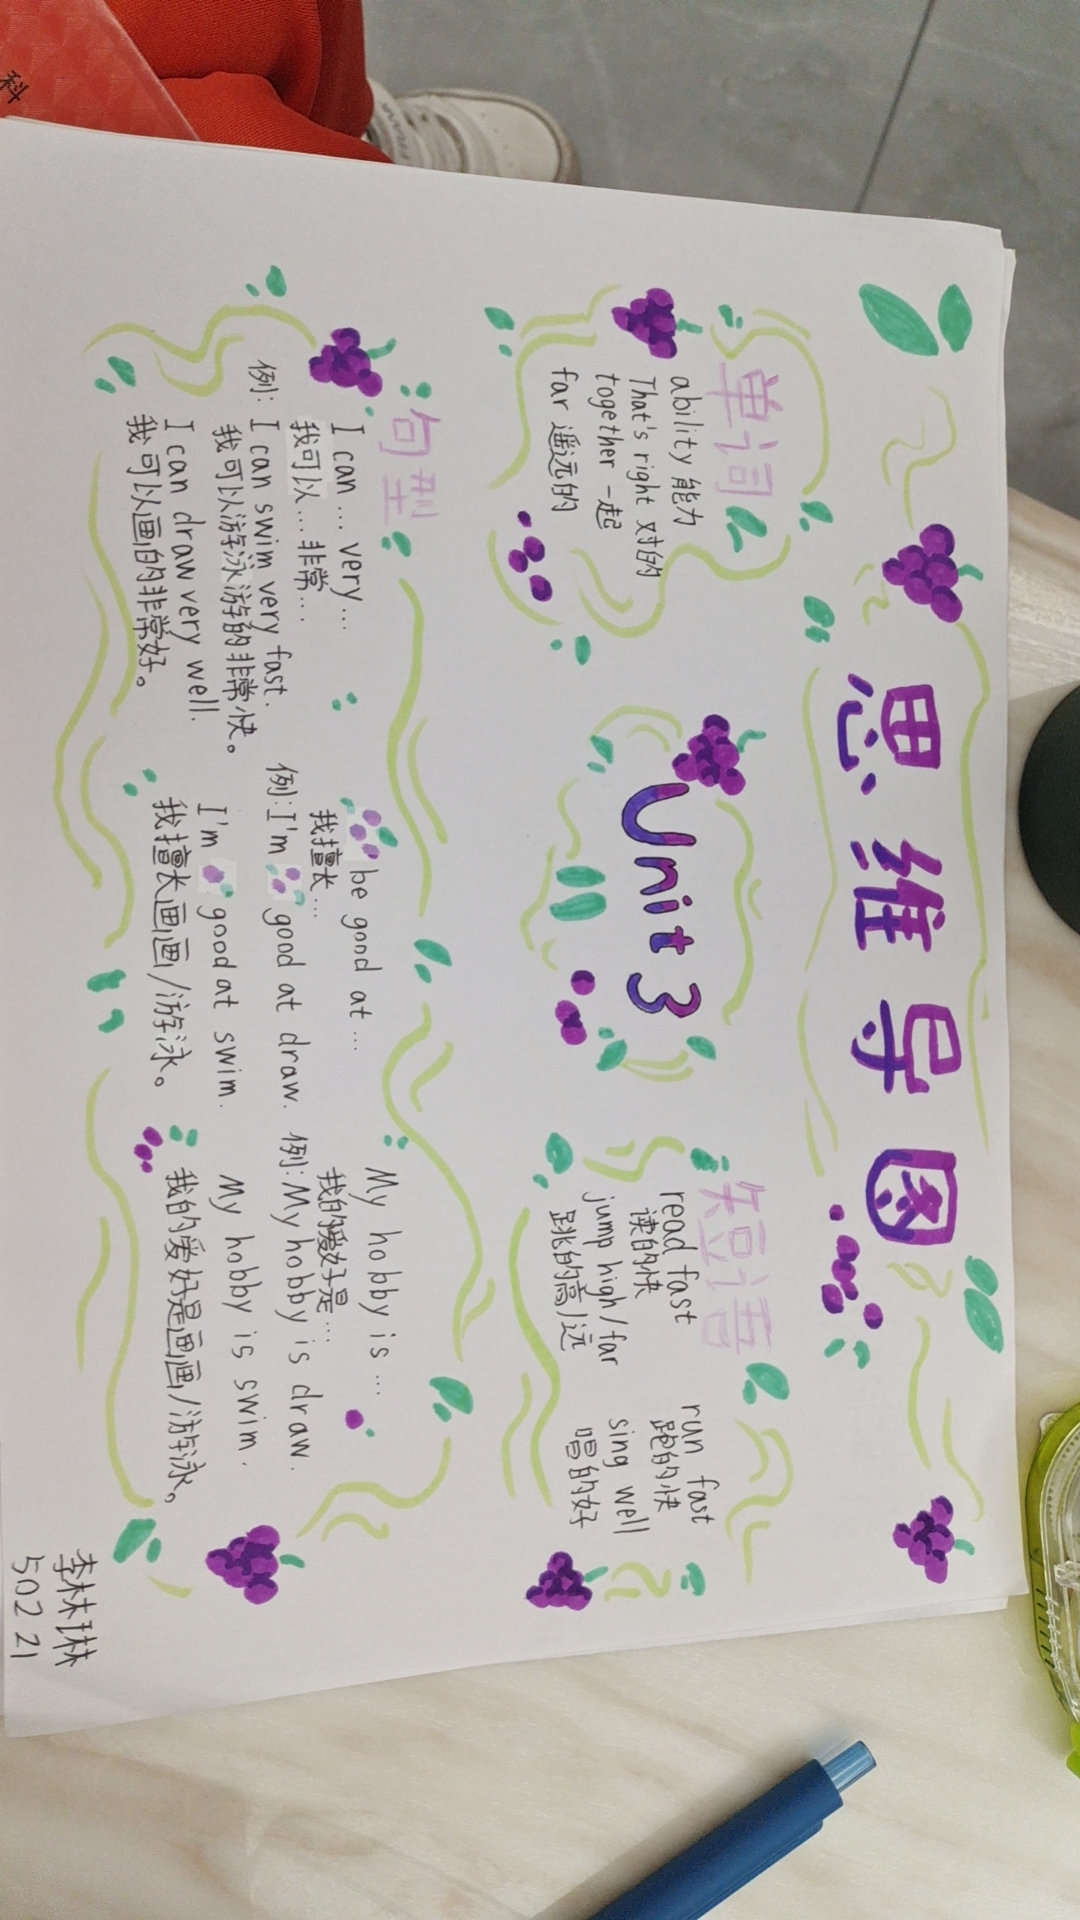 思维导图
单词
ability 能力
That's right 对的
together 一起
far 遥远的
Unit 3
短语
read fast
读的快
jump high/far
跳的高/远
run fast
跑的快
sing well
唱的好
句型
I can ... very ...
我可以...非常...
例: I can swim very fast.
我可以游泳游的非常快。
I can draw very well.
我可以画的非常好。
be good at ...
我擅长...
例: I'm good at draw.
I'm good at swim.
我擅长画画/游泳。
My hobby is ...
我的爱好是...
例: My hobby is draw.
My hobby is swim.
我的爱好是画画/游泳。
李林琳
502 21
科